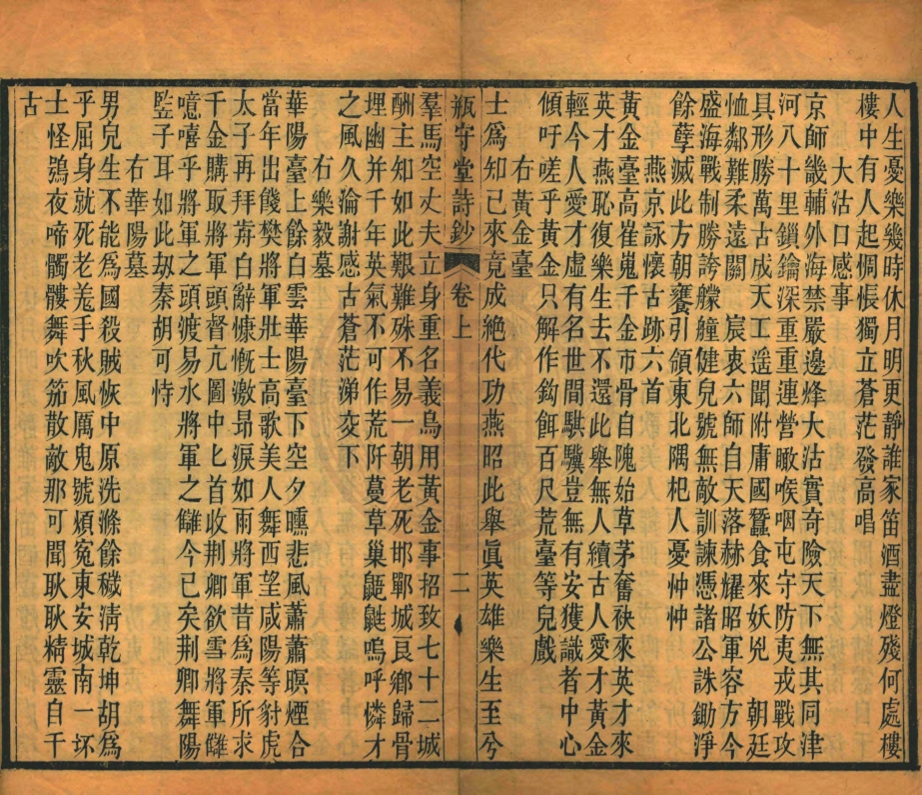 人生憂樂幾時休月明更靜誰家笛酒盡燈殘何處樓
樓中有人起惆悵獨立蒼茫發高唱
大沽口感事
京師畿輔外海禁嚴邊烽大沽實奇險天下無其同津
河八十里鎖鑰深重重連營瞰喉咽屯守防夷戎戰攻
具形勝萬古成天工遥聞附庸國蠶食來妖兇　朝廷
恤鄰難柔遠關　宸衷六師自天落赫耀昭軍容方今
盛海戰制勝誇艨艟健兒號無敵訓諫憑諸公誅鋤淨
餘孽滅此方朝饔引領東北隅杞人憂忡忡
燕京詠懷古跡六首
黃金臺高崔嵬千金市骨自隗始草茅奮袂來英才來
英才燕恥復樂生去不還此舉無人續古人愛才黃金
輕今人愛才虛有名世間騏驥豈無有安獲識者中心
傾吁嗟乎黃金只解作鈎餌百尺荒臺等兒戲
右黃金臺
士爲知已來竟成絶代功燕昭此舉眞英雄樂生至兮
瓶守堂詩鈔　卷上　二
羣馬空丈夫立身重名義烏用黃金事招致七十二城
酬主知如此艱難殊不易一朝老死邯鄲城良鄉歸骨
埋幽并千年英氣不可作荒阡蔓草巢鼯鼪嗚呼憐才
之風久淪謝感古蒼茫涕交下
右樂毅墓
華陽臺上餘白雲華陽臺下空夕曛悲風蕭蕭暝煙合
當年出餞樊將軍壯士高歌美人舞西望咸陽等豺虎
太子再拜荊白辭慷慨激昻淚如雨將軍昔爲秦所求
千金購取將軍頭督亢圖中匕首收荆卿欲雪將軍讎
噫嘻乎將軍之頭渡易水將軍之讎今已矣荆卿舞陽
豎子耳如此刼秦胡可恃
右華陽墓
男兒生不能爲國殺賊恢中原洗滌餘穢淸乾坤胡爲
乎屈身就死老羗手秋風厲鬼號煩寃東安城南一坏
土怪鴞夜啼髑髏舞吹笳散敵那可聞耿耿精靈自千
古